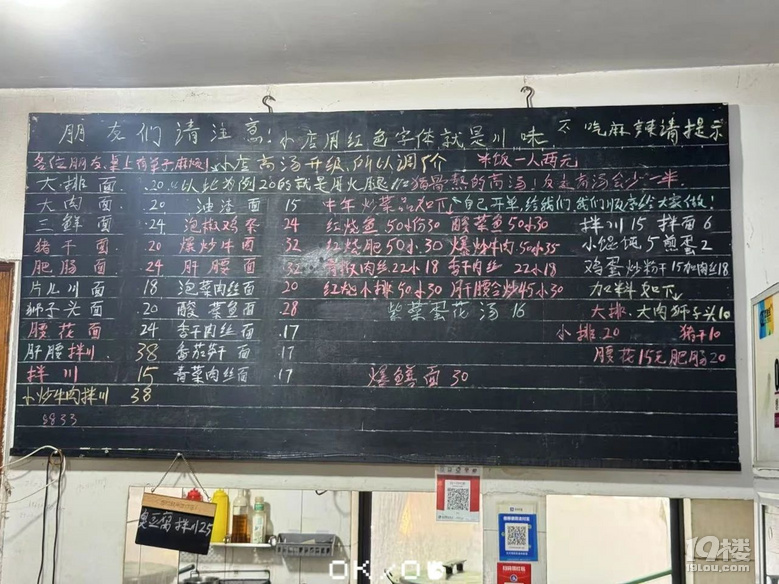 朋友们请注意！小店用红色字体就是川味 不吃麻辣请提示
各位朋友桌上有单子麻烦！小店高汤升级所以调价 米饭一人两元
大排面 .20 以此为例20的就是用火腿 猪骨熬的高汤！反之高汤会少一半
大肉面 .20 油渣面 15 中午炒菜品如下 自己开单给我们 我们顺序给大家做！
三鲜面 .24 泡椒鸡杂 24 红烧鱼50小份30 酸菜鱼50小30 拌川15 拌面6
猪干面 .20 爆炒牛肉 32 红烧肥50小30 爆炒牛肉50小35 小馄饨5 煎蛋2
肥肠面 .24 肝腰面 32 青椒肉丝22小18 香干肉丝22小18 鸡蛋炒粉干15加肉丝18
片儿川面 .18 泡菜肉丝面 20 红烧小排50小30 肝腰合炒45小30 加料如下
狮子头面 .20 酸菜鱼面 .28 紫菜蛋花汤 16 大排、大肉狮子头10
腰花面 24 香干肉丝面 .17 小排20 猪干10
肝腰拌川 38 番茄笋干面 .17 腰花15元肥肠20
拌川 15 青菜肉丝面 .17 爆鳝面 30
小炒牛肉拌川 38
8833
臭豆腐拌川25
19楼
19lou.com